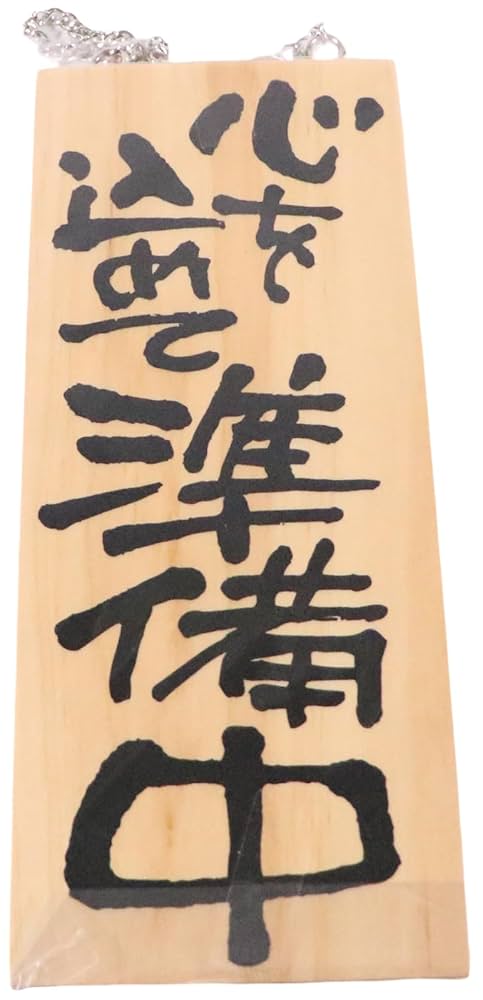 心を
込めて
準備中